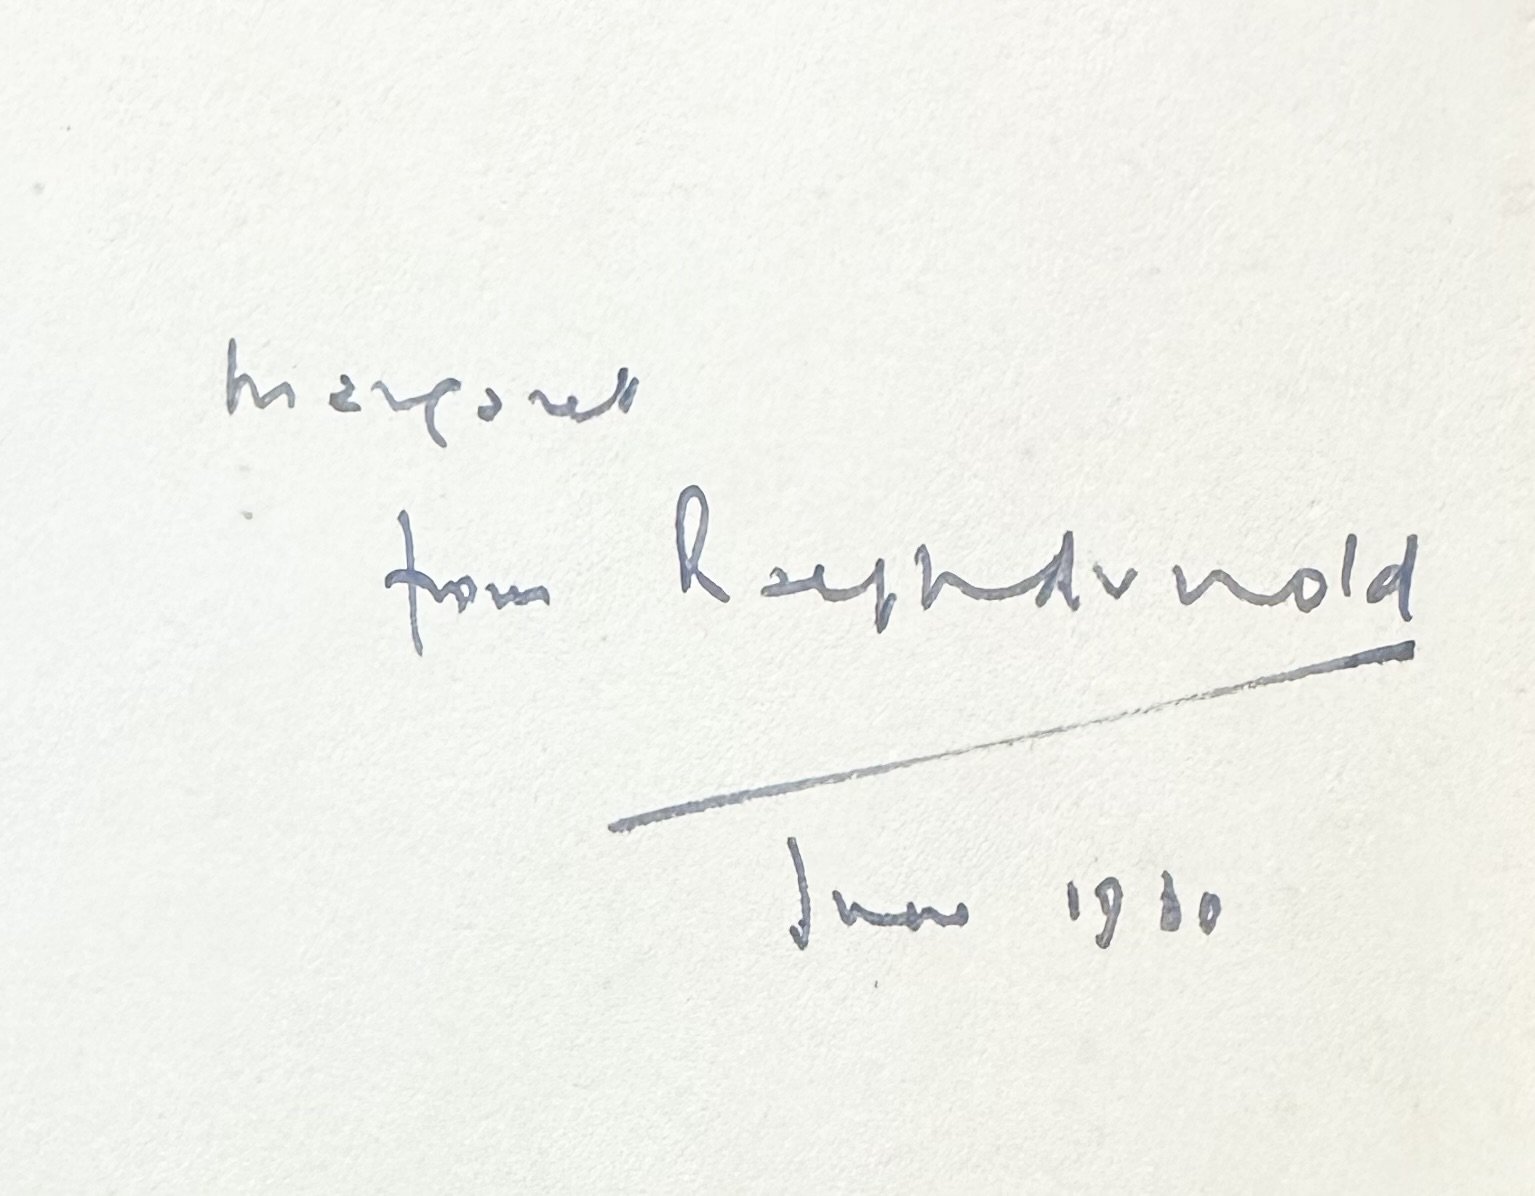 Margaret
from Ralph Arnold
June 1930